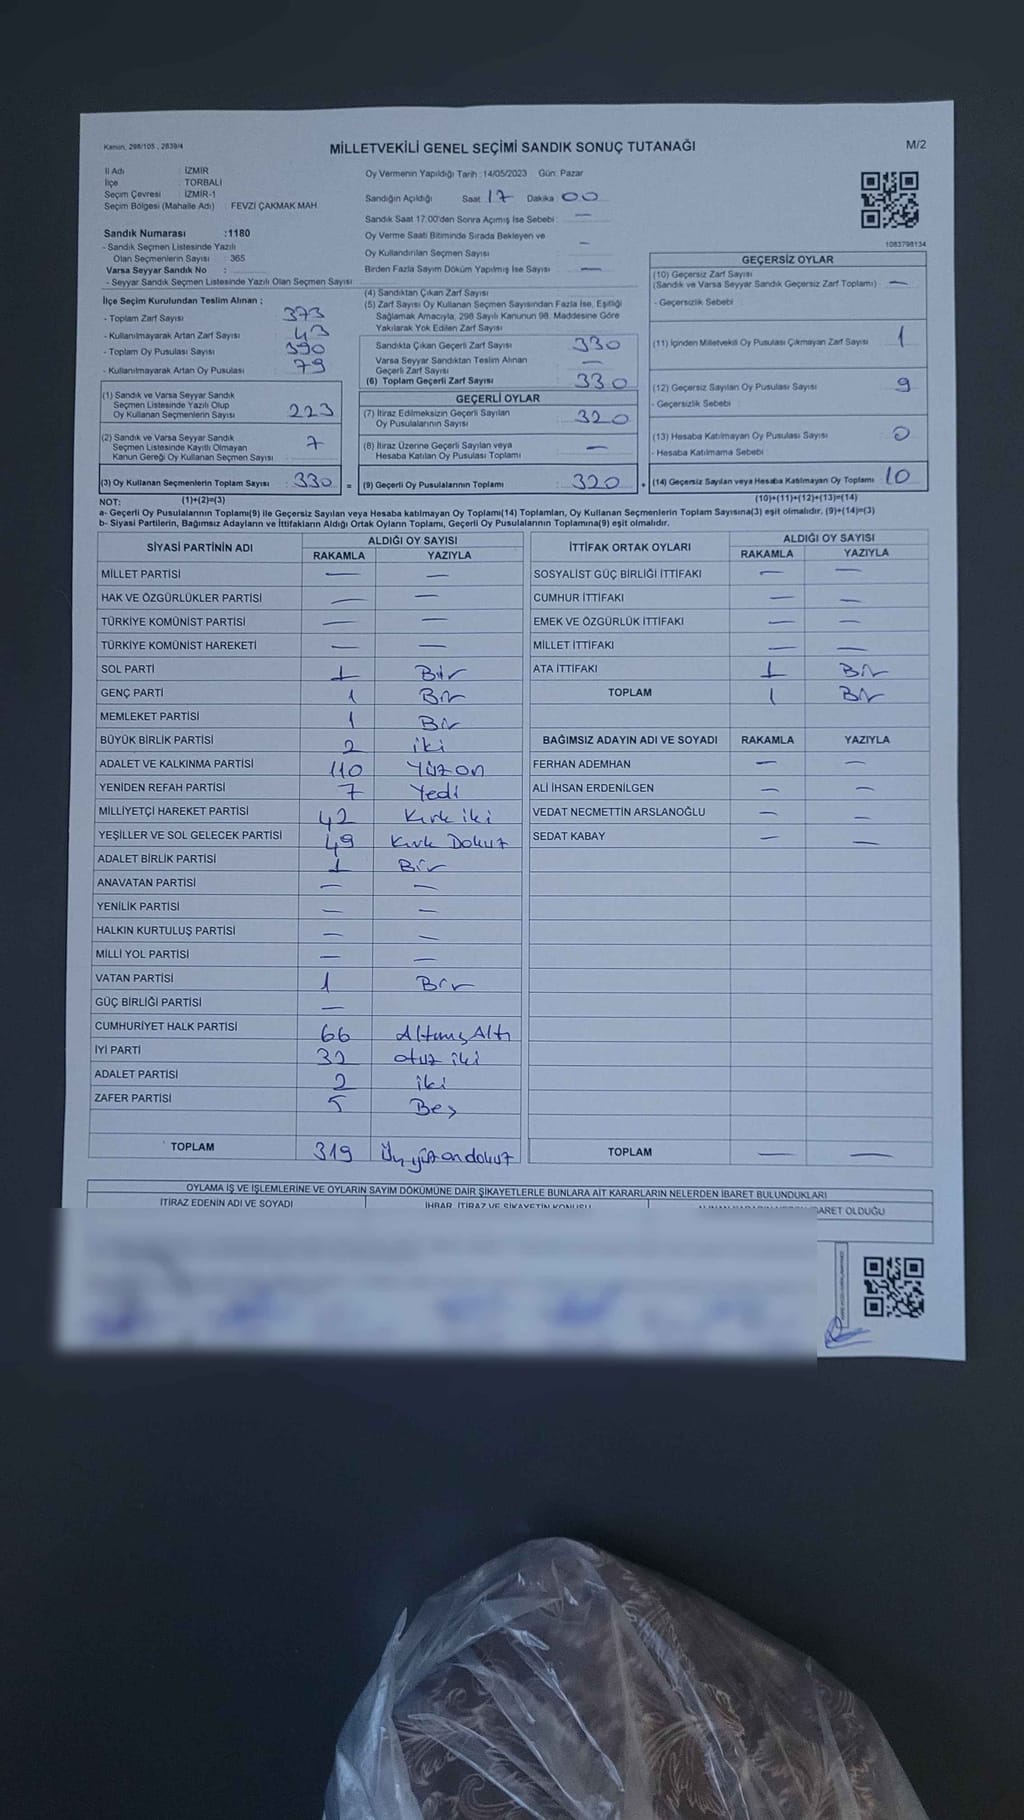 Kanun, 298/105 , 2839/4
MİLLETVEKİLİ GENEL SEÇİMİ SANDIK SONUÇ TUTANAĞI
M/2
İl Adı : İZMİR
İlçe : TORBALI
Seçim Çevresi : İZMİR-1
Seçim Bölgesi (Mahalle Adı) : FEVZİ ÇAKMAK MAH.
Sandık Numarası :1180
- Sandık Seçmen Listesinde Yazılı
Olan Seçmenlerin Sayısı : 365
Varsa Seyyar Sandık No :
- Seyyar Sandık Seçmen Listesinde Yazılı Olan Seçmen Sayısı
İlçe Seçim Kurulundan Teslim Alınan ;
- Toplam Zarf Sayısı : 373
- Kullanılmayarak Artan Zarf Sayısı : 43
- Toplam Oy Pusulası Sayısı : 390
- Kullanılmayarak Artan Oy Pusulası : 79
(1) Sandık ve Varsa Seyyar Sandık
Seçmen Listesinde Yazılı Olup
Oy Kullanan Seçmenlerin Sayısı : 223
(2) Sandık ve Varsa Seyyar Sandık
Seçmen Listesinde Kayıtlı Olmayan
Kanun Gereği Oy Kullanan Seçmen Sayısı : 7
(3) Oy Kullanan Seçmenlerin Toplam Sayısı : 330 =
(1)+(2)=(3)
Oy Vermenin Yapıldığı Tarih :14/05/2023 Gün: Pazar
Sandığın Açıldığı Saat 17 Dakika 00
Sandık Saat 17:00'den Sonra Açımış İse Sebebi : —
Oy Verme Saati Bitiminde Sırada Bekleyen ve
Oy Kullandırılan Seçmen Sayısı : —
Birden Fazla Sayım Döküm Yapılmış İse Sayısı : —
(4) Sandıktan Çıkan Zarf Sayısı
(5) Zarf Sayısı Oy Kullanan Seçmen Sayısından Fazla İse, Eşitliği
Sağlamak Amacıyla, 298 Sayılı Kanunun 98. Maddesine Göre
Yakılarak Yok Edilen Zarf Sayısı
Sandıkta Çıkan Geçerli Zarf Sayısı : 330
Varsa Seyyar Sandıktan Teslim Alınan
Geçerli Zarf Sayısı : —
(6) Toplam Geçerli Zarf Sayısı : 330
GEÇERLİ OYLAR
(7) İtiraz Edilmeksizin Geçerli Sayılan
Oy Pusulalarının Sayısı : 320
(8) İtiraz Üzerine Geçerli Sayılan veya
Hesaba Katılan Oy Pusulası Toplamı : —
(9) Geçerli Oy Pusulalarının Toplamı : 320 +
1083798134
GEÇERSİZ OYLAR
(10) Geçersiz Zarf Sayısı
(Sandık ve Varsa Seyyar Sandık Geçersiz Zarf Toplamı) : —
- Geçersizlik Sebebi
(11) İçinden Milletvekili Oy Pusulası Çıkmayan Zarf Sayısı : 1
(12) Geçersiz Sayılan Oy Pusulası Sayısı : 9
- Geçersizlik Sebebi :
(13) Hesaba Katılmayan Oy Pusulası Sayısı : 0
- Hesaba Katılmama Sebebi
(14) Geçersiz Sayılan veya Hesaba Katılmayan Oy Toplamı : 10
(10)+(11)+(12)+(13)=(14)
NOT:
a- Geçerli Oy Pusulalarının Toplamı(9) ile Geçersiz Sayılan veya Hesaba katılmayan Oy Toplamı(14) Toplamları, Oy Kullanan Seçmenlerin Toplam Sayısına(3) eşit olmalıdır. (9)+(14)=(3)
b- Siyasi Partilerin, Bağımsız Adayların ve İttifakların Aldığı Ortak Oyların Toplamı, Geçerli Oy Pusulalarının Toplamına(9) eşit olmalıdır.
SİYASİ PARTİNİN ADI ALDIĞI OY SAYISI
RAKAMLA YAZIYLA
MİLLET PARTİSİ — —
HAK VE ÖZGÜRLÜKLER PARTİSİ — —
TÜRKİYE KOMÜNİST PARTİSİ — —
TÜRKİYE KOMÜNİST HAREKETİ — —
SOL PARTİ 1 Bir
GENÇ PARTİ 1 Bir
MEMLEKET PARTİSİ 1 Bir
BÜYÜK BİRLİK PARTİSİ 2 iki
ADALET VE KALKINMA PARTİSİ 110 Yüz on
YENİDEN REFAH PARTİSİ 7 Yedi
MİLLİYETÇİ HAREKET PARTİSİ 42 Kırk iki
YEŞİLLER VE SOL GELECEK PARTİSİ 49 Kırk Dokuz
ADALET BİRLİK PARTİSİ 1 Bir
ANAVATAN PARTİSİ — —
YENİLİK PARTİSİ — —
HALKIN KURTULUŞ PARTİSİ — —
MİLLİ YOL PARTİSİ — —
VATAN PARTİSİ 1 Bir
GÜÇ BİRLİĞİ PARTİSİ —
CUMHURİYET HALK PARTİSİ 66 Altmış Altı
İYİ PARTİ 32 otuz iki
ADALET PARTİSİ 2 iki
ZAFER PARTİSİ 5 Beş
TOPLAM 319 Üç yüz on dokuz
İTTİFAK ORTAK OYLARI ALDIĞI OY SAYISI
RAKAMLA YAZIYLA
SOSYALİST GÜÇ BİRLİĞİ İTTİFAKI — —
CUMHUR İTTİFAKI — —
EMEK VE ÖZGÜRLÜK İTTİFAKI — —
MİLLET İTTİFAKI — —
ATA İTTİFAKI 1 Bir
TOPLAM 1 Bir
BAĞIMSIZ ADAYIN ADI VE SOYADI RAKAMLA YAZIYLA
FERHAN ADEMHAN — —
ALİ İHSAN ERDENİLGEN — —
VEDAT NECMETTİN ARSLANOĞLU — —
SEDAT KABAY — —
TOPLAM — —
OYLAMA İŞ VE İŞLEMLERİNE VE OYLARIN SAYIM DÖKÜMÜNE DAİR ŞİKAYETLERLE BUNLARA AİT KARARLARIN NELERDEN İBARET BULUNDUKLARI
İTİRAZ EDENİN ADI VE SOYADI İHBAR, İTİRAZ VE ŞİKAYETİN KONUSU